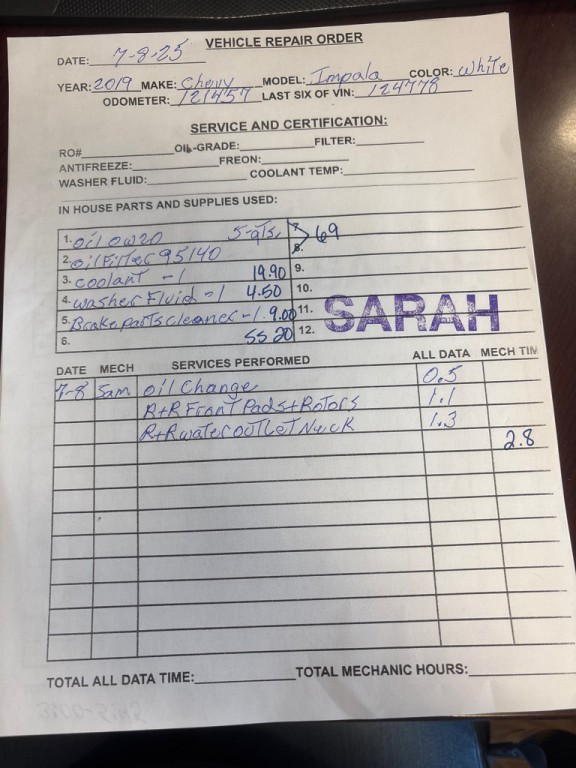 VEHICLE REPAIR ORDER
DATE: 7-8-25
YEAR: 2019 MAKE: Chevy MODEL: Impala COLOR: White
ODOMETER: 121457 LAST SIX OF VIN: 124778
SERVICE AND CERTIFICATION:
RO# OIL-GRADE: FILTER:
ANTIFREEZE: FREON:
WASHER FLUID: COOLANT TEMP:
IN HOUSE PARTS AND SUPPLIES USED:
1. oil 0w20 5-qts. 7. 69
2. oil Filter 95140 8.
3. coolant - 1 19.90 9.
4. washer Fluid - 1 4.50 10.
5. Brake parts cleaner - 1. 9.00 11.
6. SS 20 12.
SARAH
DATE MECH SERVICES PERFORMED ALL DATA MECH TIM
7-8 Sam oil Change 0.5
R+R Front Pads + Rotors 1.1
R+R water outlet Neck 1.3
2.8
TOTAL ALL DATA TIME: TOTAL MECHANIC HOURS: